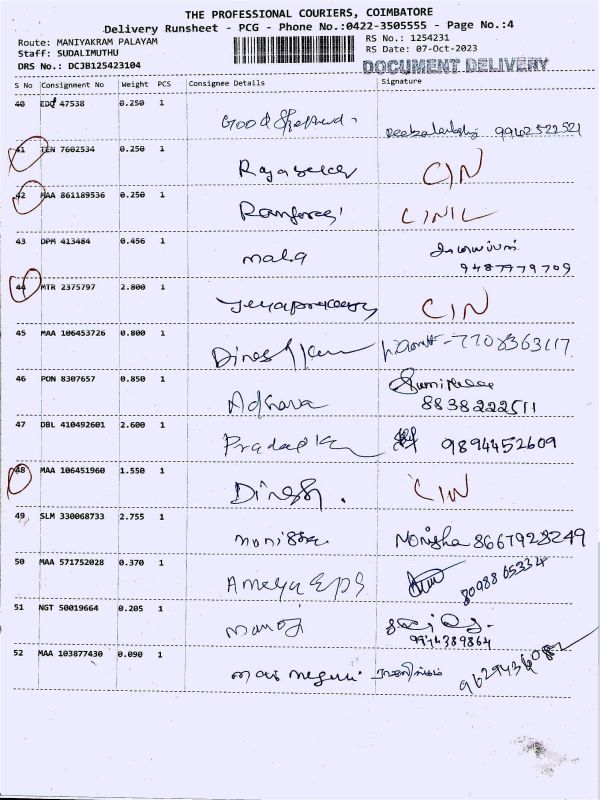 THE PROFESSIONAL COURIERS, COIMBATORE
Delivery Runsheet - PCG - Phone No.:0422-3505555 - Page No.:4
Route: MANIYAKRAM PALAYAM
RS No.: 1254231
Staff: SUDALIMUTHU
RS Date: 07-Oct-2023
DRS No.: DCJB125423104
DOCUMENT DELIVERY
S No Consignment No Weight PCS Consignee Details Signature
40 EDC 47538 0.250 1
Good Shepherd. 9942522521
41 TEN 7602534 0.250 1
Rajasekar CIN
42 MAA 861189536 0.250 1
CINIL
43 DPM 413484 0.456 1
mala
9487979709
44 MTR 2375797 2.800 1
CIN
45 MAA 106453726 0.800 1
Dinesh Kum -7708363117
46 PON 8307657 0.850 1
8838222511
47 DBL 410492601 2.600 1
Pradeep K 9894452609
48 MAA 106451960 1.550 1
Dinesh. CIN
49 SLM 330068733 2.755 1
monisha Monisha 8667928249
50 MAA 571752028 0.370 1
Ameya EPS 8098865334
51 NGT 50019664 0.205 1
manoj
9944389864
52 MAA 103877430 0.090 1